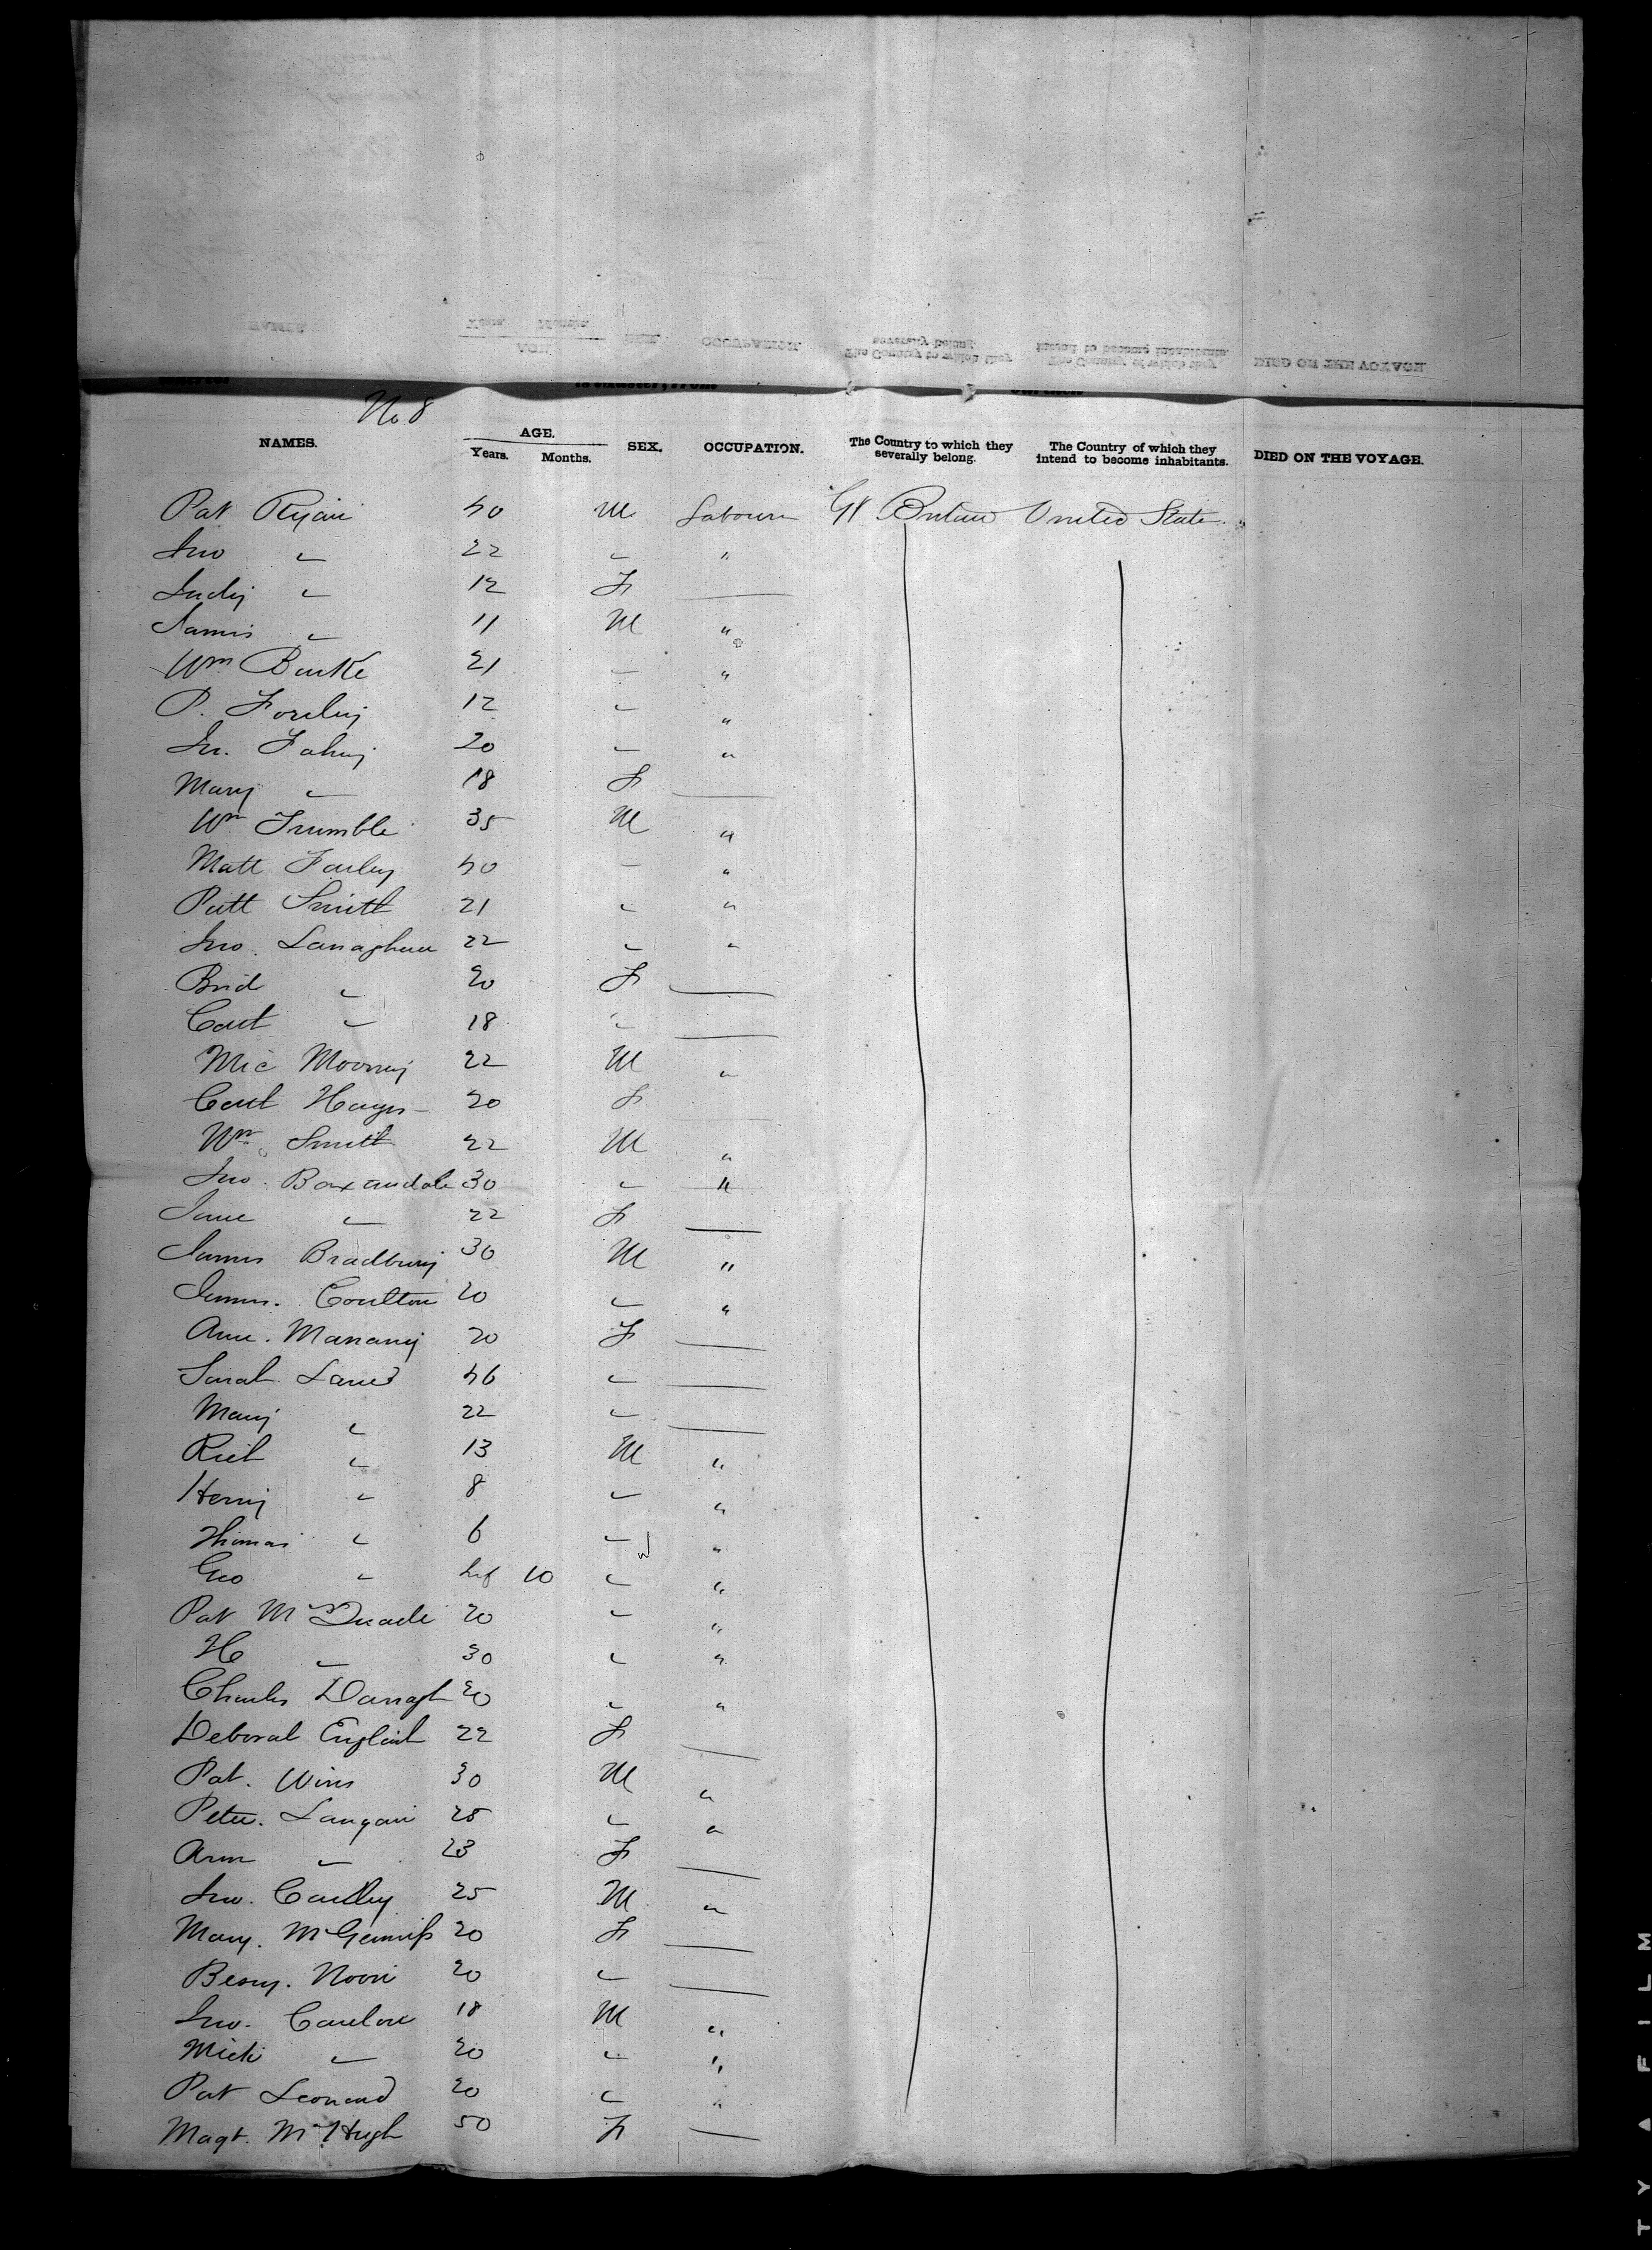 No 8
NAMES. AGE. Years. Months. SEX. OCCUPATION. The Country to which they severally belong. The Country of which they intend to become inhabitants. DIED ON THE VOYAGE.
Pat Ryan 40 M Labourer Gt Britain United States
Jno " 22 " "
Judy " 12 F —
James " 11 M "
Wm Burke 21 " "
P. 12 " "
Jn. Fahy 20 " "
Mary " 18 F —
Wm Trumble 35 M "
Matt Farley 40 " "
Patt Smith 21 " "
Jno. Lanaghan 22 " "
Brid " 20 F —
Cath " 18 " —
Mic Mooney 22 M "
Cath Hayes 20 F —
Wm Smith 22 M "
Jno. Boxandale 30 " "
Jane " 22 F —
James Bradbury 30 M "
James. Coulton 20 " "
Ann. Mannany 20 F —
Sarah 46 " —
Mary " 22 " —
Rich " 13 M "
Henry " 8 " "
Thomas " 6 " "
Geo " Inf 10 " "
Pat McQuade 20 " "
H " 30 " "
Charles Darragh 20 " "
Deborah English 22 F —
Pat. Wins 30 M "
Peter. Langan 25 " "
Ann " 23 F —
Jno. 25 M "
Mary. McGenniss 20 F —
Bessy. 20 " —
Jno. Conlon 18 M "
Mick " 20 " "
Pat Leonard 20 " "
Magt. McHugh 50 F —